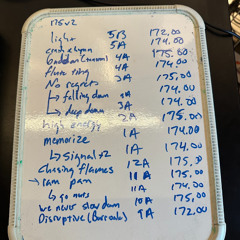 light 5B 172.00
5A 174.00
4A 175.00
flute ring 4A 174.00
No regrets 3A 175.00
↳ falling down 174.00
↳ deep down 3A 174.00
high energy 2A 175.00
memorize 1A 174.00
↳ signal v2 1A 174.00
chasing flames 12A 175.00
→ ram pam 11A 175.00
↳ go nuts 11A 174.00
we never slow down 10A 175.00
Disruptive 9A 172.00